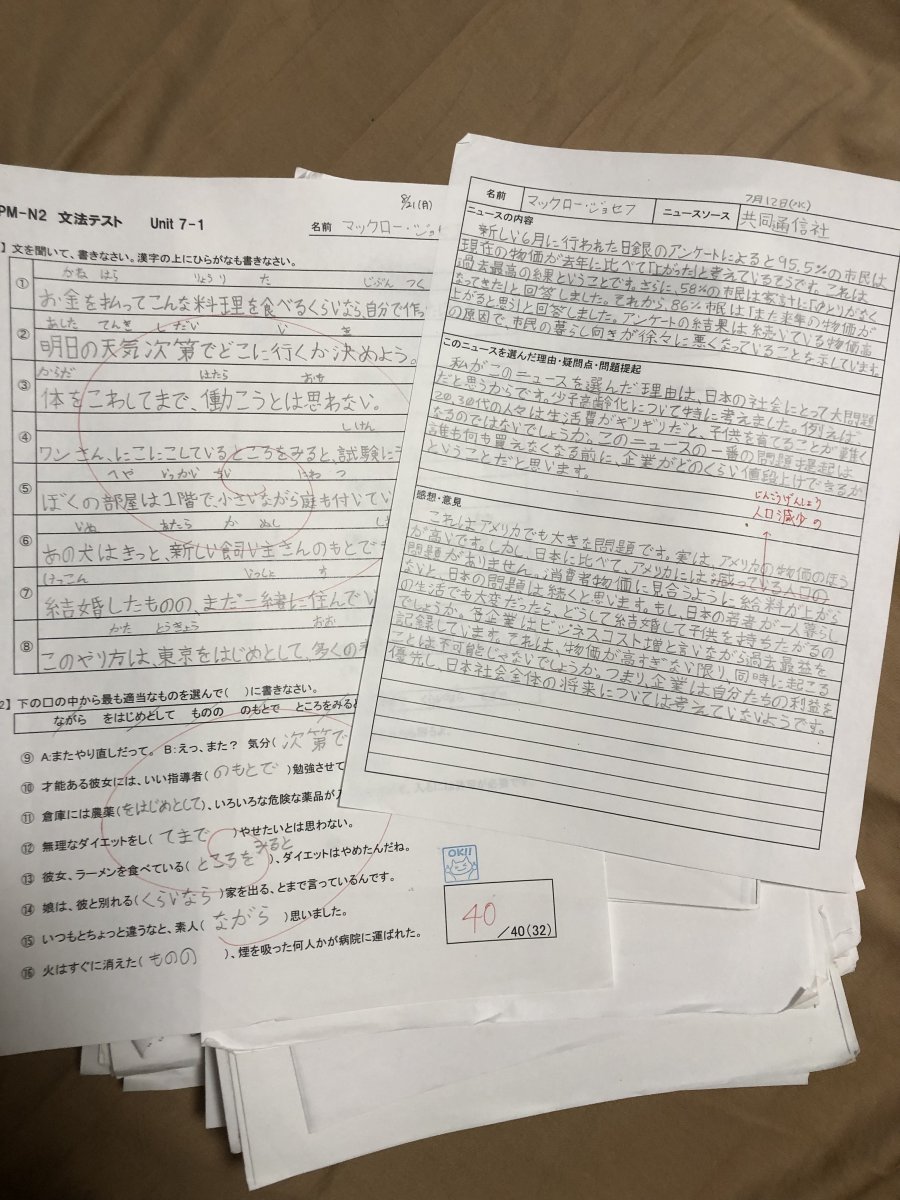 PM-N2 文法テスト Unit 7-1
8/21(月)
名前 マックロー・ジョセ
】文を聞いて、書きなさい。漢字の上にひらがなも書きなさい。
かね はら りょうり た じぶん つく
① お金を払ってこんな料理を食べるくらいなら、自分で作っ
あした てんき しだい い き
② 明日の天気次第でどこに行くか決めよう。
からだ はたら おも
③ 体をこわしてまで、働こうとは思わない。
しけん
④ ワンさん、にこにこしているところをみると、試験に
へや いっかい ちい にわ つ
⑤ ぼくの部屋は1階で、小さいながら庭も付いてい
いぬ あたら か ぬし
⑥ あの犬はきっと、新しい飼い主さんのもとで
けっこん いっしょ す
⑦ 結婚したものの、まだ一緒に住んでい
かた とうきょう おお
⑧ このやり方は、東京をはじめとして、多くの
2】下の口の中から最も適当なものを選んで( )に書きなさい。
ながら をはじめとして ものの のもとで ところをみると
⑨ A:またやり直しだって。 B:えっ、また? 気分( 次第で
⑩ 才能ある彼女には、いい指導者( のもとで )勉強させて
⑪ 倉庫には農薬(をはじめとして)、いろいろな危険な薬品が
⑫ 無理なダイエットをし( てまで )やせたいとは思わない。
⑬ 彼女、ラーメンを食べている( ところを みると )、ダイエットはやめたんだね。
⑭ 娘は、彼と別れる( くらいなら )家を出る、とまで言っているんです。
⑮ いつもとちょっと違うなと、素人( ながら )思いました。
⑯ 火はすぐに消えた( ものの )、煙を吸った何人かが病院に運ばれた。
OK!!
40
/40(32)
7月12日(水)
名前 マックロー・ジョセフ ニュースソース 共同通信社
ニュースの内容
新しい6月に行われた日銀のアンケートによると95.5%の市民は
現在の物価が去年に比べて「上がった」と考えているそうです。これは
過去最高の結果ということです。さらに、58%の市民は家計に「ゆとりがなく
なってきた」と回答しました。それから、86%市民は「また来年の物価が
上がると思う」と回答しました。アンケートの結果は続いている物価高
の原因で、市民の暮らし向きが徐々に悪くなっていることを示しています。
このニュースを選んだ理由・疑問点・問題提起
私がこのニュースを選んだ理由は、日本の社会にとって大問題
だと思うからです。少子高齢化について特に考えました。例えば
20,30代の人々は生活費がギリギリだと、子供を育てることが難しく
なるのではないでしょうか。このニュースの一番の問題提起は
誰も何も買えなくなる前に、企業がどのくらい値段上げできるか
ということだと思います。
感想・意見
じんこうげんしょう
人口減少の
これはアメリカでも大きな問題です。実は、アメリカの物価のほう
が高いです。しかし、日本に比べて、アメリカには減っている人口の
問題がありません。消費者物価に見合うように給料が上がら
ないと、日本の問題は続くと思います。もし、日本の若者が一人暮らし
の生活でも大変だったら、どうして結婚して子供を持ちたがるの
でしょうか。各企業はビジネスコスト増と言いながら過去最益を
記録しています。これは、物価が高すぎない限り、同時に起こる
ことは不可能じゃないでしょうか。つまり、企業は自分たちの利益を
優先し、日本社会全体の将来については考えていないようです。